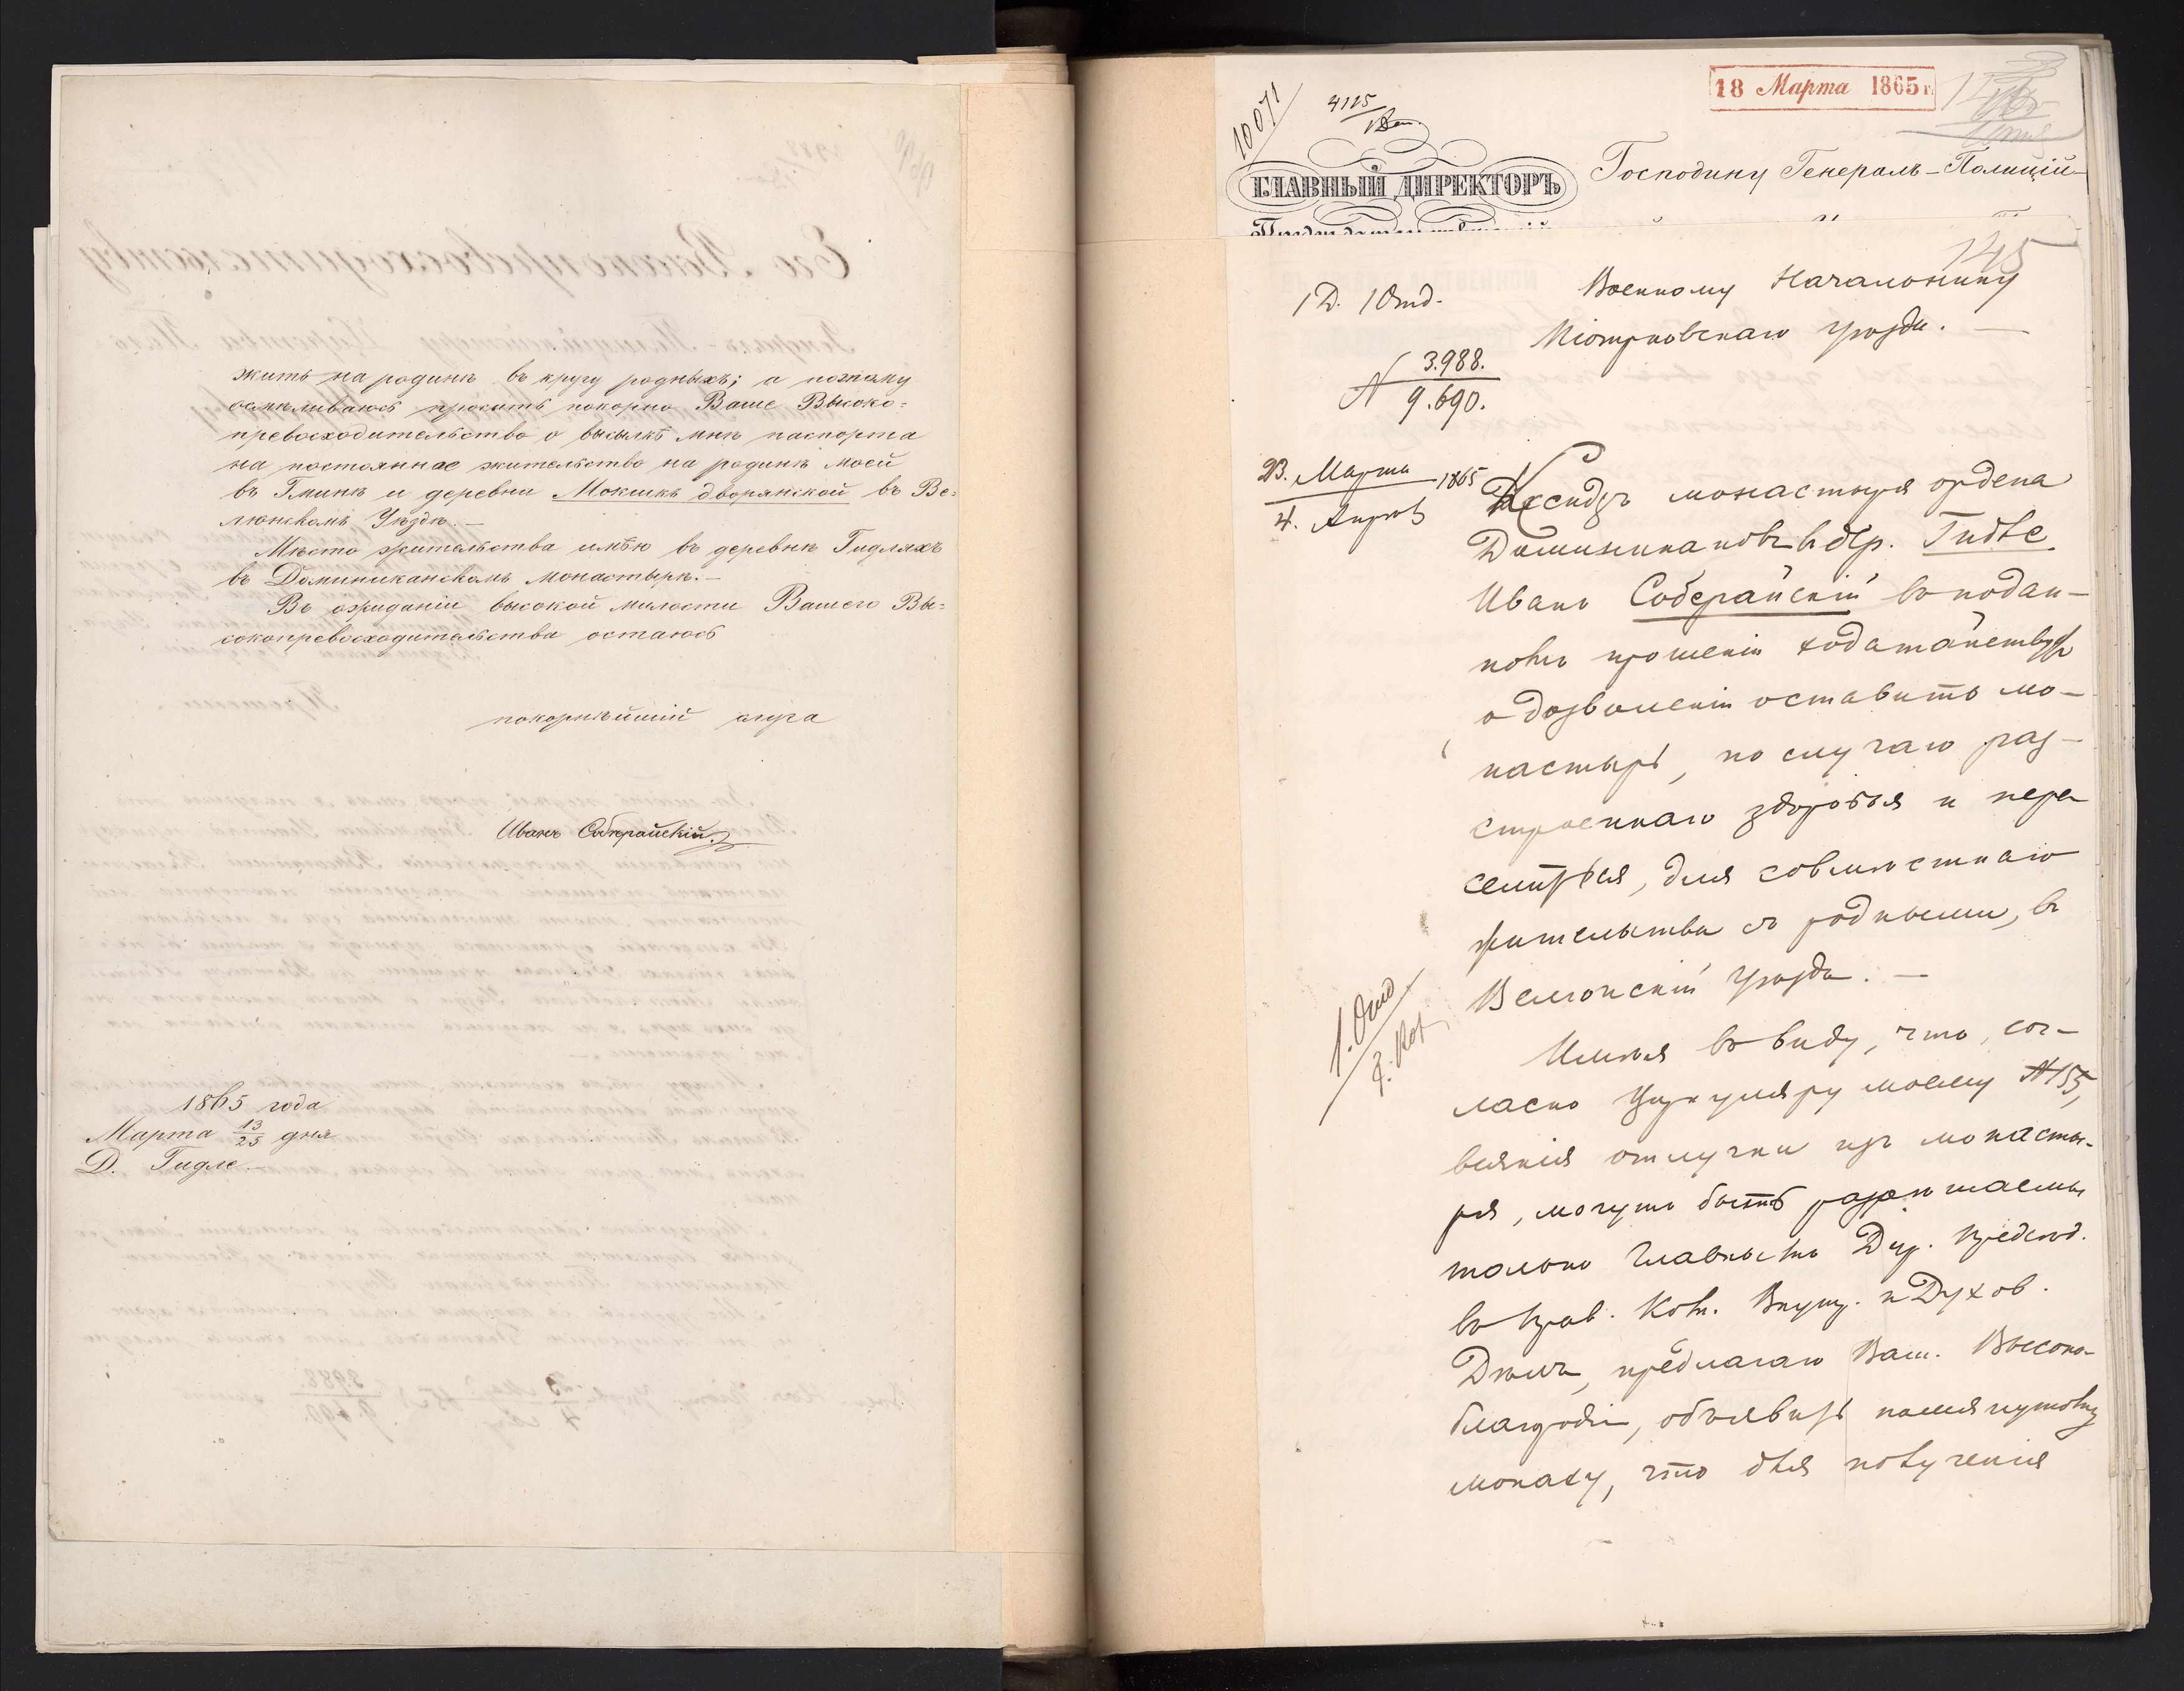 жить на родинѣ въ кругу родныхъ; а поэтому
осмѣливаюсь просить покорно Ваше Высоко=
превосходительство о высылкѣ мнѣ паспорта
на постоянное жительство на родинѣ моей
въ Гминѣ и деревни Мокшкѣ дворянской въ Ве=
люнскомъ Уѣздѣ.—
Мѣсто жительства имѣю въ деревнѣ Гидляхъ
въ Доминиканскомъ монастырѣ.—
Въ ожиданіи высокой милости Вашего Вы=
сокопревосходительства остаюсь
покорнѣйшій слуга
Иванъ Собѣрайскій
1865 года
Марта 13/25 дня
Д. Гидле.—
18 Марта 1865 г.
10071
4125
ГЛАВНЫЙ ДИРЕКТОРЪ
Господину Генералъ-Полицій-
145
1 Д. 1 Отд.
Военному Начальнику
Піотрковскаго уѣзда. —
N 3.988.
9.690.
23. Марта 1865
4. Апрѣ
Ксендзъ монастыря ордена
Доминикановъ въ дер. Гидле
Иванъ Соберайскій въ подан-
номъ прошеніи ходатайствуетъ
о дозволеніи оставить мо-
настырь, по случаю раз-
строеннаго здоровья и пере
для совмѣстнаго
жительства съ родными, въ
Велюнскій уѣздъ. —
1. Отд
Имѣя въ виду, что, сог-
ласно Циркуляру моему N 155,
всякія отлучки изъ монасты-
ря, могутъ быть разрѣшаемы
только Главнымъ Дир. Предсѣд.
въ Прав. Ком. Внутр. и Духов.
Дѣлъ, предлагаю Ваш. Высоко-
благородію, объявить помянутому
монаху, что для полученія